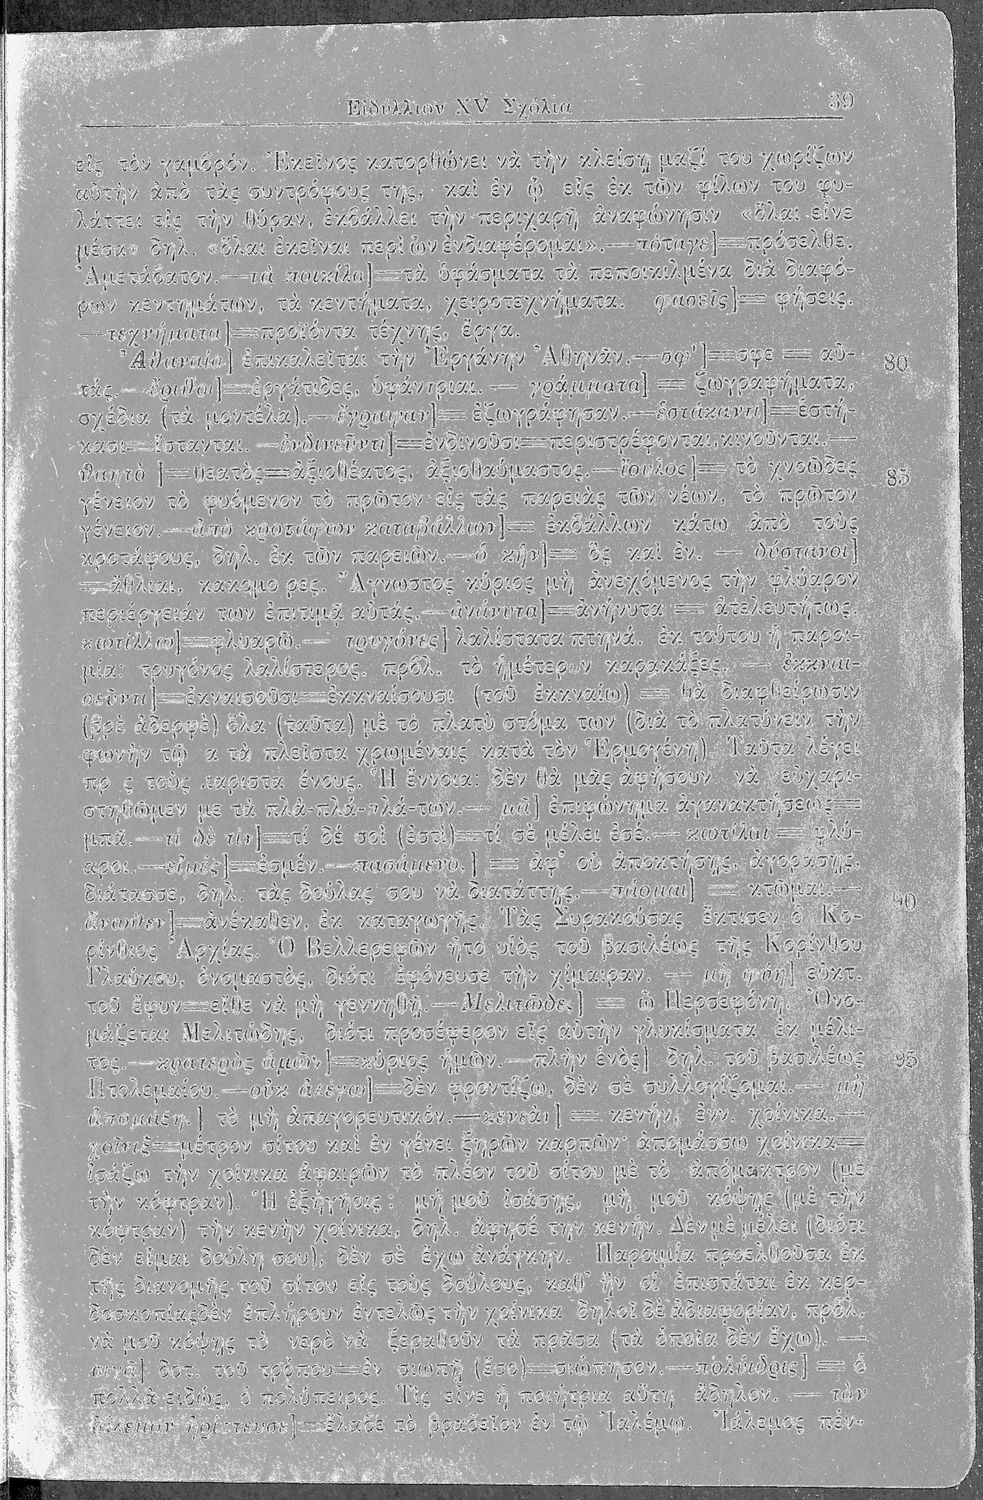 Εἰδύλλιον XV Σχόλια 39
εἰς τὸν γαμβρόν. Ἐκεῖνος κατορθώνει νὰ τὴν κλείσῃ μαζί του χωρίζων
αὐτὴν ἀπὸ τὰς συντρόφους της, καὶ ἐν ᾧ εἷς ἐκ τῶν φίλων του φυ-
λάττει εἰς τὴν θύραν, ἐκβάλλει τὴν περιχαρῆ ἀναφώνησιν «ὅλαι εἶνε
μέσα» δηλ. «ὅλαι ἐκεῖναι περὶ ὧν ἐνδιαφέρομαι».—πόταγε]=πρόσελθε.
Ἀμετάβατον.—τὰ ποικίλα]=τὰ ὑφάσματα τὰ πεποικιλμένα διὰ διαφό-
ρων κεντημάτων, τὰ κεντήματα, χειροτεχνήματα. φασεῖς]= φήσεις.
—τεχνήματα]=προϊόντα τέχνης, ἔργα.
Ἀθαναία] ἐπικαλεῖται τὴν Ἐργάνην Ἀθηνᾶν.—σφ']=σφε = αὐ- 80
τάς.—ἔριθοι]=ἐργάτιδες, ὑφάντριαι. — γράμματα] = ζωγραφήματα,
σχέδια (τὰ μοντέλα).—ἔγραψαν]= ἐζωγράφησαν.—ἑστάκαντι]=ἑστή-
κασι=ἵστανται. —ἐνδινεῦντι]=ἐνδινοῦσι=περιστρέφονται, κινοῦνται.—
θαητὸ ]=θεατὸς=ἀξιοθέατος, ἀξιοθαύμαστος.—ἴουλος]= τὸ χνοῶδες 85
γένειον τὸ φυόμενον τὸ πρῶτον εἰς τὰς παρειὰς τῶν νέων, τὸ πρῶτον
γένειον.—ἀπὸ κροτάφων καταβάλλων]= ἐκβάλλων κάτω ἀπὸ τοὺς
κροτάφους, δηλ. ἐκ τῶν παρειῶν.—ὁ κἠν]= ὃς καὶ ἐν. — δύστανοι]
=ἄθλιαι, κακομο ρες. Ἄγνωστος κύριος μὴ ἀνεχόμενος τὴν φλύαρον
περιέργειάν των ἐπιτιμᾷ αὐτάς.—ἀνάνυτα]=ἀνήνυτα = ἀτελευτήτως.
κωτίλλω]=φλυαρῶ.— τρυγόνες] λαλίστατα πτηνά. ἐκ τούτου ἡ παροι-
μία: τρυγόνος λαλίστερος. πρβλ. τὸ ἡμέτερον καρακάξες. — ἐκκναι-
σεῦντι]=ἐκναισοῦσι=ἐκκναίσουσι (τοῦ ἐκκναίω) = θὰ διαφθείρωσιν
(βρὲ ἀδερφὲ) ὅλα (ταῦτα) μὲ τὸ πλατὺ στόμα των (διὰ τὸ πλατύνειν τὴν
φωνὴν τῷ α τὰ πλεῖστα χρωμέναις κατὰ τὸν Ἑρμογένη). Ταῦτα λέγει
πρ ς τοὺς παρισταμένους. Ἡ ἔννοια: δὲν θὰ μᾶς ἀφήσουν νὰ εὐχαρι-
στηθῶμεν με τὰ πλά-πλά-πλά-των.— μᾶ] ἐπιφώνημα ἀγανακτήσεως=
μπᾶ.—τί δὲ τὶν]=τί δέ σοὶ (ἐστὶ)=τί σὲ μέλει ἐσέ.— κωτίλαι = φλύ-
αροι.—εἰμὲς]=ἐσμέν.—πασάμενο.] = ἀφ' οὗ ἀποκτήσῃς, ἀγοράσῃς,
διάτασσε, δηλ. τὰς δούλας σου νὰ διατάττῃς.—πάομαι] = κτῶμαι.— 90
ἄνωθεν]=ἀνέκαθεν, ἐκ καταγωγῆς. Τὰς Συρακούσας ἔκτισεν ὁ Κο-
ρίνθιος Ἀρχίας. Ὁ Βελλερεφῶν ἦτο υἱὸς τοῦ βασιλέως τῆς Κορίνθου
Γλαύκου, ὀνομαστὸς, διότι ἐφόνευσε τὴν χίμαιραν. — μὴ φύη] εὐκτ.
τοῦ ἔφυν=εἴθε νὰ μὴ γεννηθῇ.—Μελιτῶδες] = ὦ Περσεφόνη Ὀνο-
μάζεται Μελιτώδης, διότι προσέφερον εἰς αὐτὴν γλυκίσματα ἐκ μέλι-
τος.—κρατερὸς ἁμῶν]=κύριος ἡμῶν.—πλὴν ἑνὸς] δηλ. τοῦ βασιλέως 95
Πτολεμαίου.—οὐκ ἀλέγω]=δὲν φροντίζω, δὲν σὲ συλλογίζομαι.— μή
ἀπομάξη.] τὸ μὴ ἀπαγορευτικόν.—κενεὰν] = κενήν, ἐνν. χοίνικα.—
χοῖνιξ=μέτρον σίτου καὶ ἐν γένει ξηρῶν καρπῶν· ἀπομάσσω χοίνικα=
ἰσάζω τὴν χοίνικα ἀφαιρῶν τὸ πλέον τοῦ σίτου μὲ τὸ ἀπόμακτρον (μὲ
τὴν κόφτραν). Ἡ ἐξήγησις: μή μοῦ ἰσάσῃς, μὴ μοῦ κόψῃς (μὲ τὴν
κόφτραν) τὴν κενὴν χοίνικα, δηλ. ἄφησέ την κενήν. Δὲν μὲ μέλει (διότι
δὲν εἶμαι δούλη σου), δὲν σὲ ἔχω ἀνάγκην. Παροιμία προελθοῦσα ἐκ
τῆς διανομῆς τοῦ σίτου εἰς τοὺς δούλους, καθ' ἣν οἱ ἐπιστάται ἐκ κερ-
δοσκοπίας δὲν ἐπλήρουν ἐντελῶς τὴν χοίνικα δηλοῖ δὲ ἀδιαφορίαν, πρβλ.
νὰ μοῦ κόψῃς τὸ νερὸ νὰ ξεραθοῦν τὰ πρᾶσα (τὰ ὁποῖα δὲν ἔχω). —
σιγᾶ] δοτ. τοῦ τρόπου=ἐν σιωπῇ (ἔσο)=σιώπησον.—πολύιδρις] = ὁ
πολλὰ εἰδώς, ὁ πολύπειρος. Τίς εἶνε ἡ ποιήτρια αὕτη ἄδηλον. — τὸν
ἰάλεμον ἀρίστευσε]=ἔλαβε τὸ βραβεῖον ἐν τῷ Ἰαλέμῳ. Ἰάλεμος πέν-